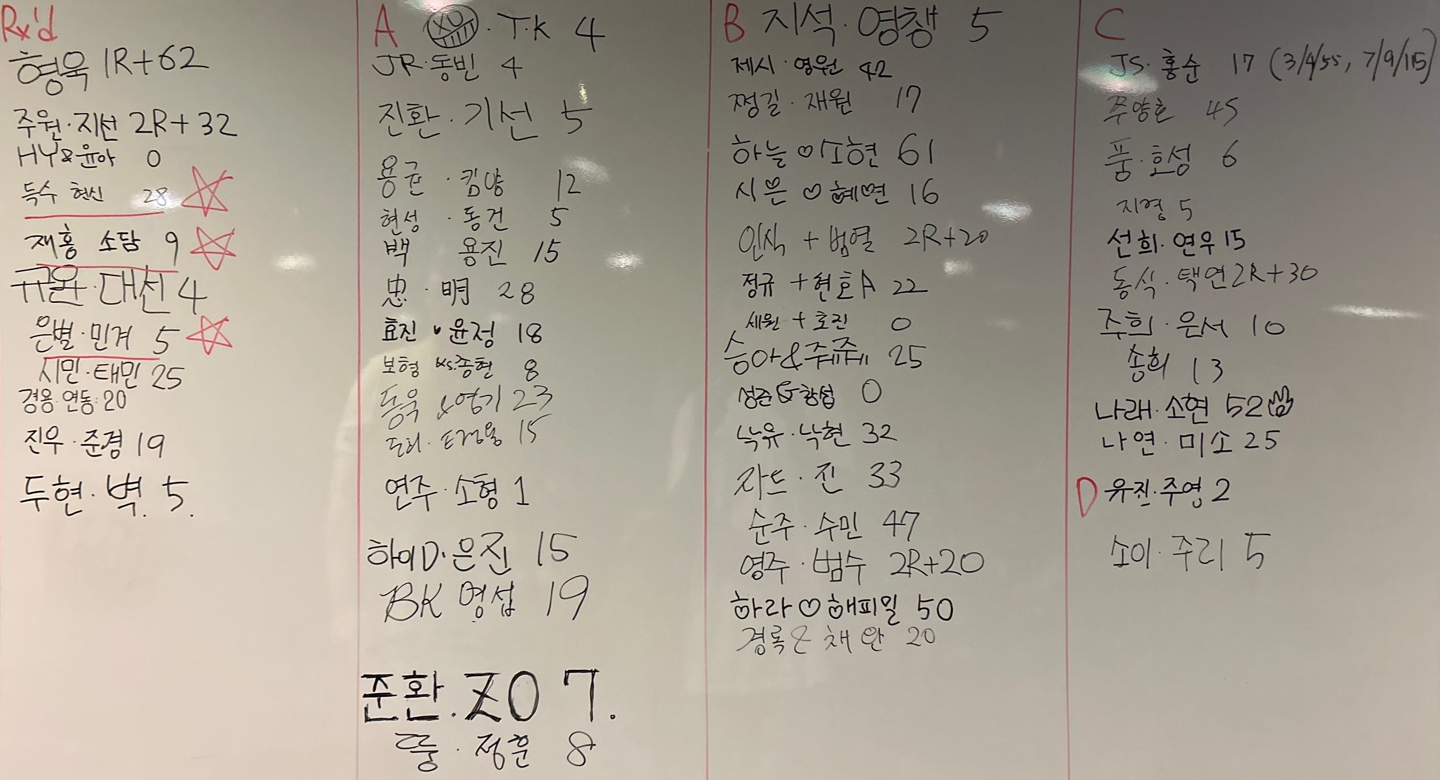 Rx'd
형욱 1R+62
주원·지선 2R+32
HY&윤아 0
득수 현신 28
재홍 소담 9
규완·대선 4
은별·민겨 5
시민·태민 25
경용·연동·20
진우·준경 19
두현·벽. 5.
A · T.K 4
JR·동빈 4
진환·기선 5
용균·킴양 12
현성·동건 5
백 용진 15
忠·明 28
효진♥윤정 18
보형 vs.종현 8
동욱 &영기 23
15
연주·소형 1
하이D·은진 15
BK 영섭 19
준환.ZO 7.
뚱·정훈 8
B 지석·영챙 5
제시·영원 42
쩡길·재원 17
하늘♡소현 61
시은♡혜연 16
인식 + 범열 2R+20
정규 + 현호A 22
세원 + 호진 0
승아&쥬쥬 25
성준&창섭 0
낙유·낙현 32
쟈드·진 33
순주·수민 47
영주·범수 2R+20
하라♡해피밀 50
경록&채완 20
C
JS·홍순 17 (3/4/55, 7/9/115)
주양호 45
품·효성 6
지영 5
선희·연우 15
동식·택연 2R+30
주희·은서 10
송희 13
나래·소현 52
나연·미소 25
D 유진·주영 2
소이·쥬리 5